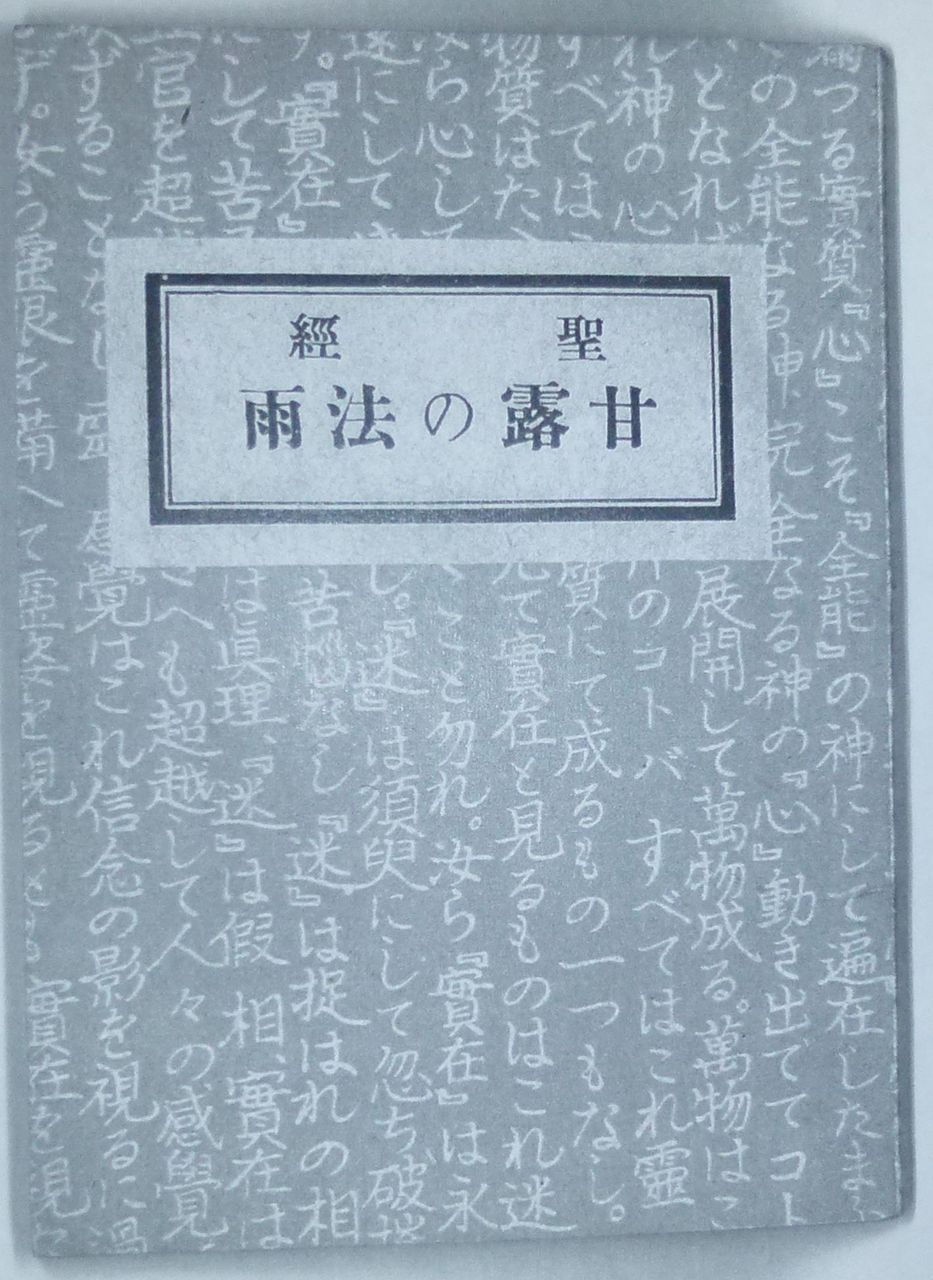 聖經
甘露の法雨
つる實質『心』こそ『全能』の神にして遍在したまふ
この全能なる神、完全なる神の『心』動き出でてコト
となれば 展開して萬物成る。萬物はこ
れ神の心 のコトバ すべてはこれ靈
すべては 質にて成るもの一つもなし。
物質はた て實在と見るものはこれ迷
ら心して こと勿れ。汝ら『實在』は永
迷にして し。『迷』は須臾にして忽ち破摧
す。『實在』 苦惱なし『迷』は捉はれの相
にして苦 は眞理、『迷』は假相、實在は
官を超 さへも超越して人々の感覺
することなし 感覺はこれ信念の影を視るに過
靈眼を備へて 實在を